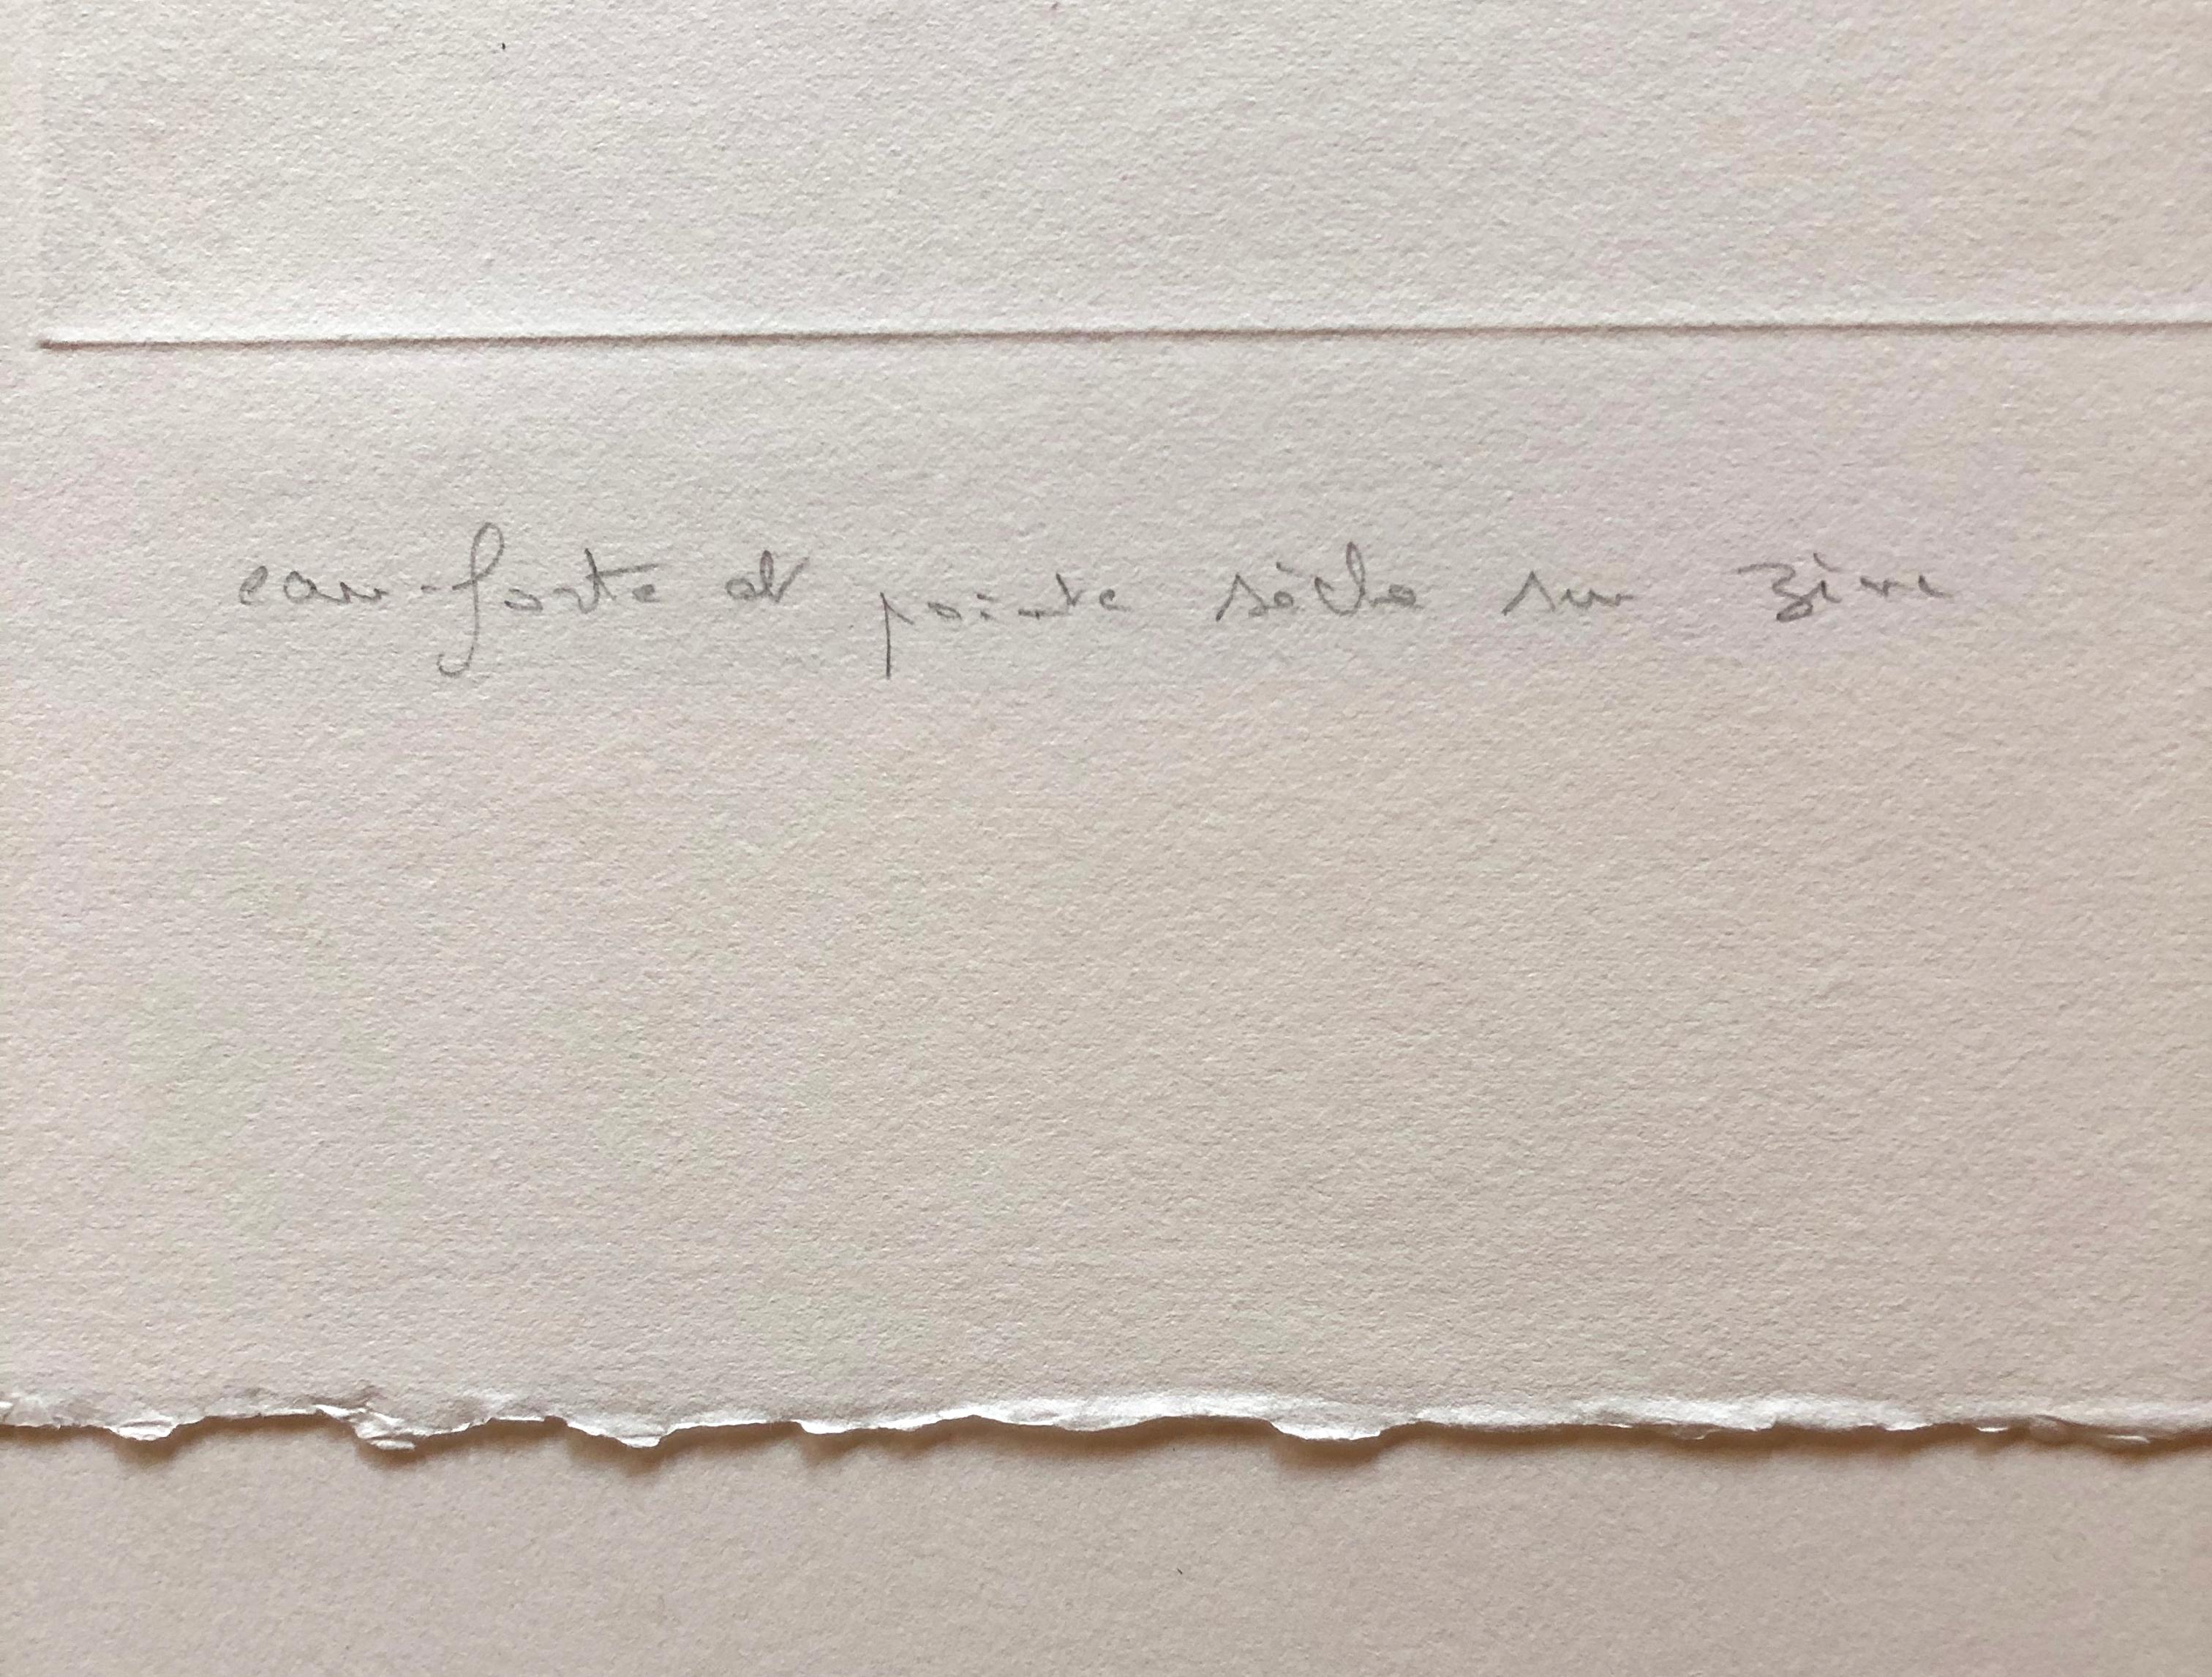 eau-forte et pointe sèche sur zinc